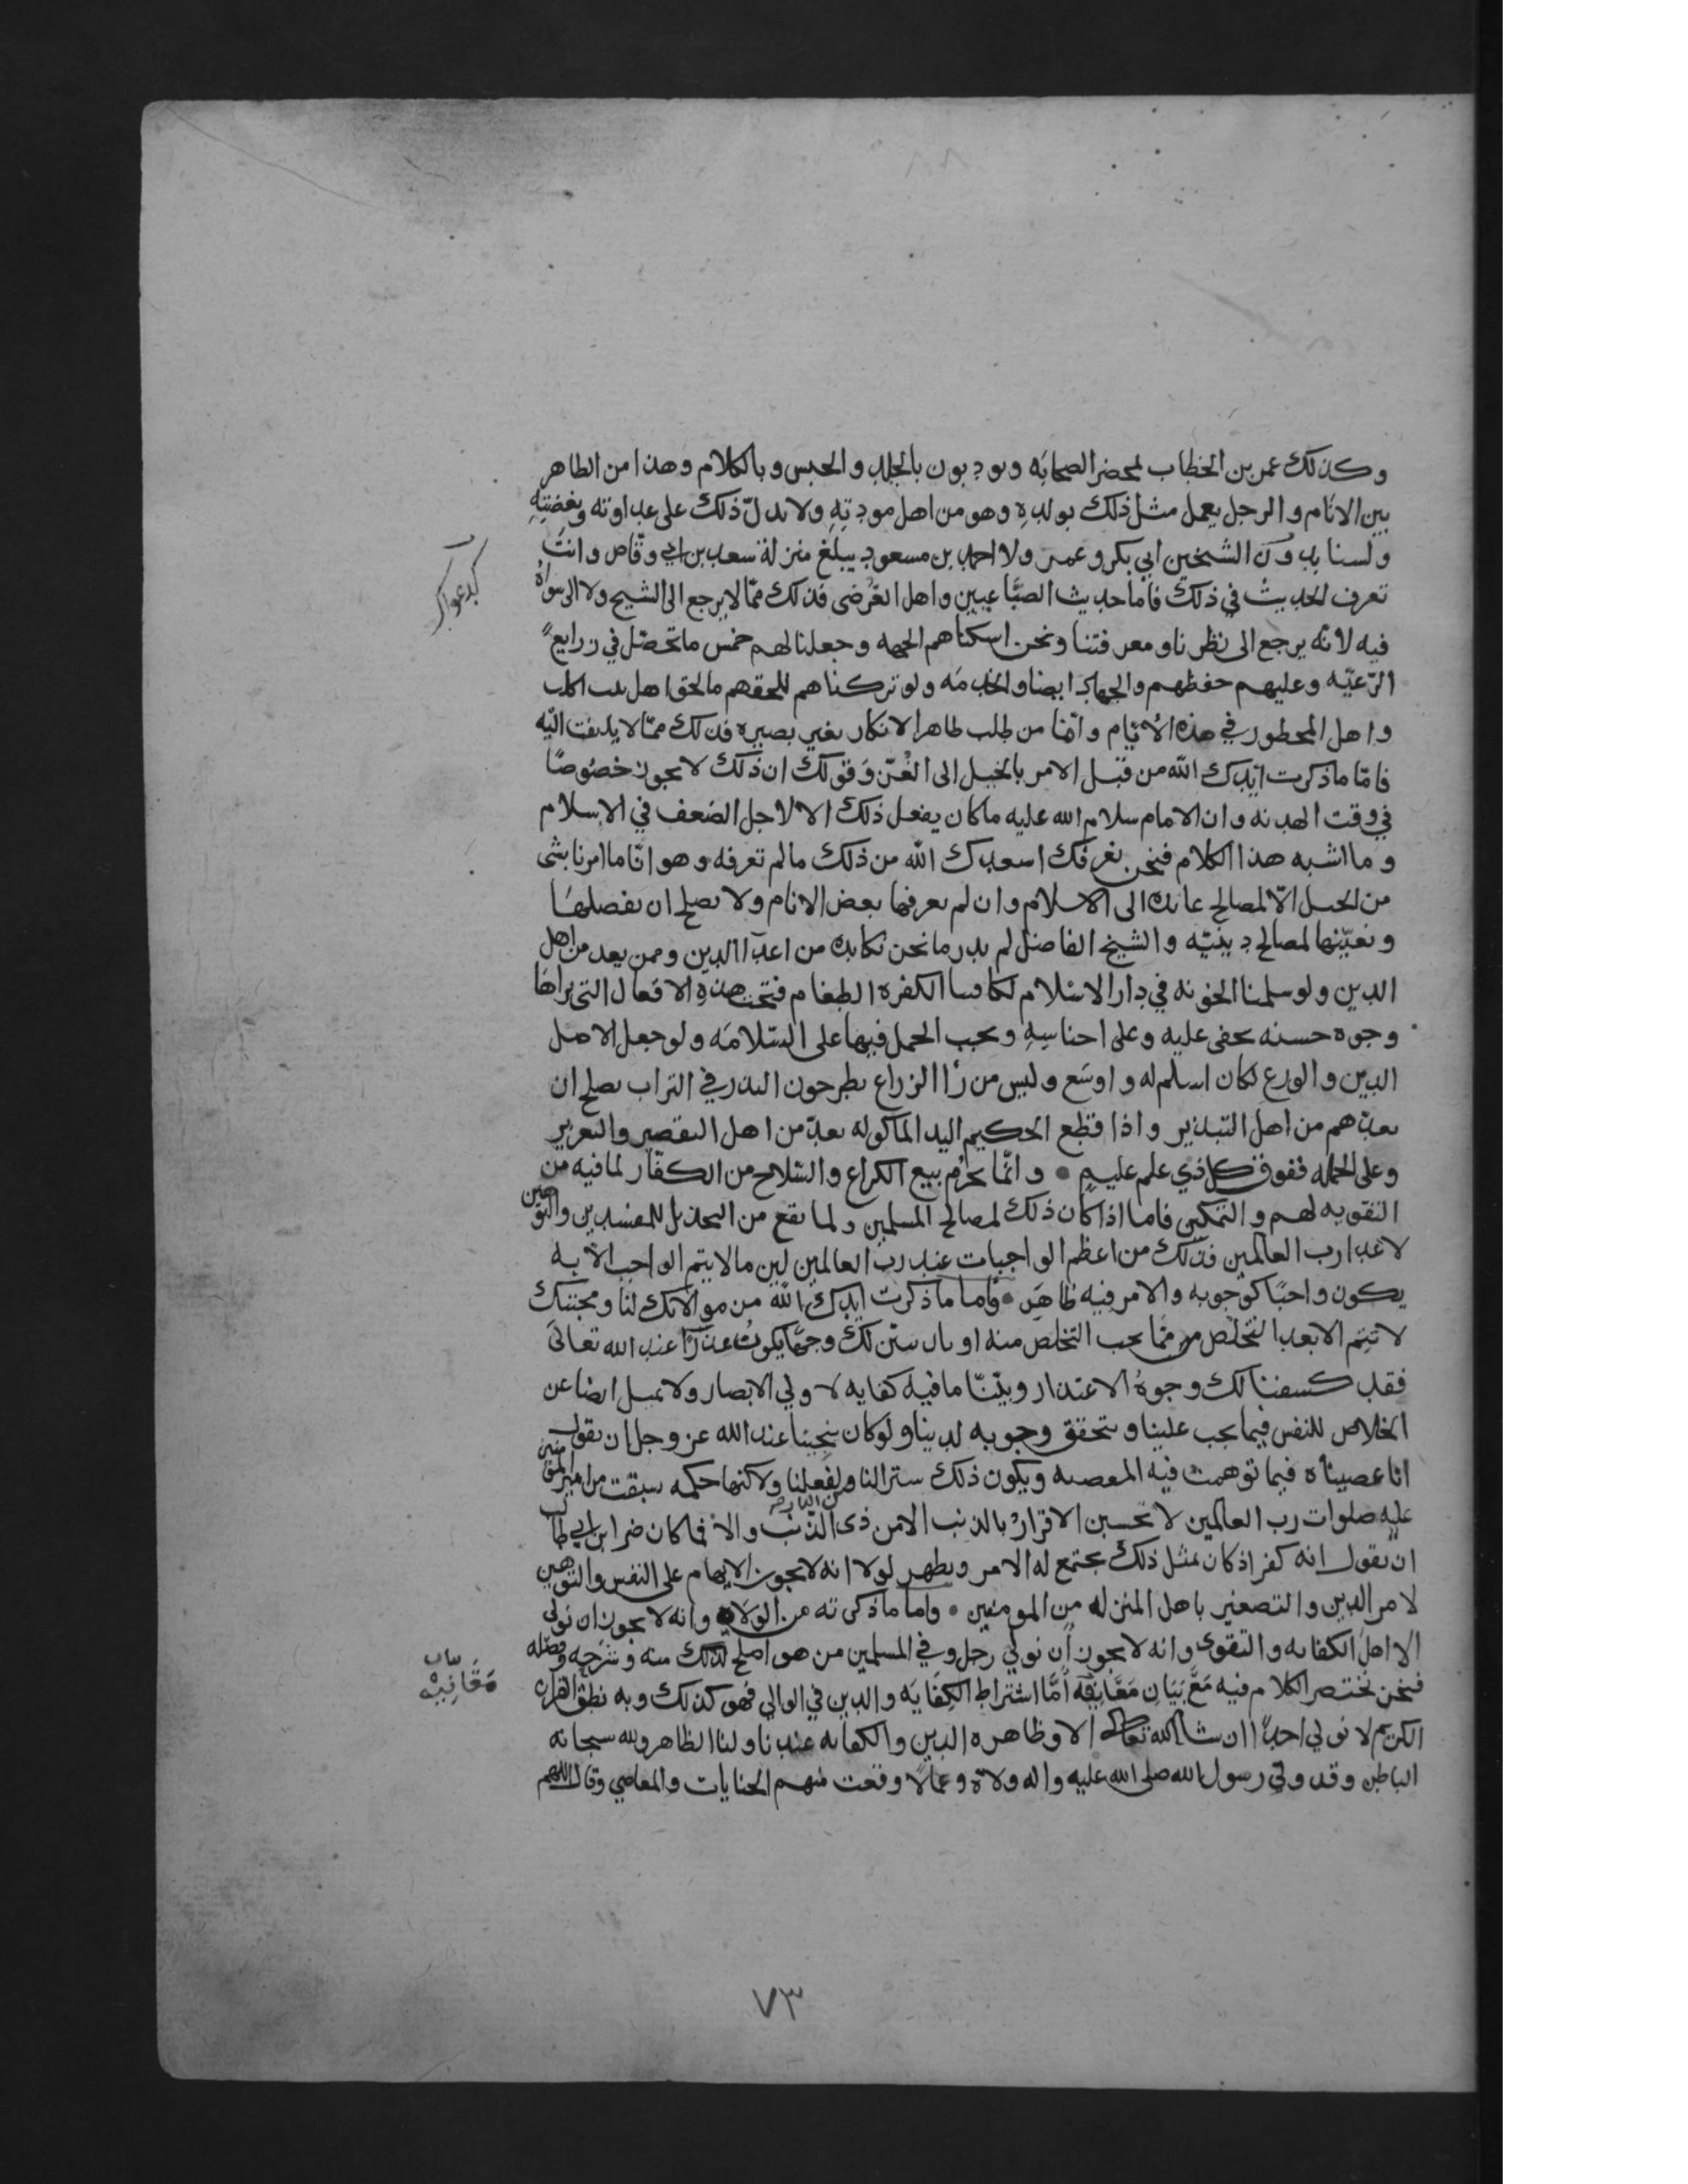 وكذلك عمر بن الخطاب لمحضر الصحابه ويودبون بالجلد والحبس وبالكلام وهذا من الظاهر
بين الانام والرجل يعمل مثل ذلك بولده وهو من اهل مودته ولا يدل ذلك على عداوته وبغضته
ولسنا بدون الشيخين ابي بكر وعمر ولا احمد بن مسعود يبلغ منزلة سعد بن ابي وقاص وانت
تعرف الحديث في ذلك فاما حديث واهل فذلك ممّا لا يرجع الى الشيخ ولا الى سواه
فيه لانّه يرجع الى نظرنا ومعرفتنا ونحن اسكناهم الجهه وجعلنا لهم خمس ما تحصّل في زرايع
الرّعيّه وعليهم حفظهم والجهاد ايضا والخدمه ولو تركناهم للحقهم ما لحق اهل
واهل في هذه الايّام وامّا من طلب ظاهر الانكار بغير بصيره فذلك ممّا لا يلتفت اليه
فامّا ما ذكرت ايّدك الله من قبل الامر بالخيل الى الغزّ وقولك ان ذلك لا يجوز خصوصًا
في وقت الهدنه وان الامام سلام الله عليه ما كان يفعل ذلك الا لاجل الضعف في الاسلام
وما اشبه هذا الكلام فنحن نعرفك اسعدك الله من ذلك ما لم تعرفه وهو انّا ما امرنا بشى
من الخيل الّا لمصالح عايده الى الاسلام وان لم يعرفها بعض الانام ولا يصلح ان نفصلها
ونعيّنها لمصالح دينيّه والشيخ الفاضل لم يدر ما نحن نكابده من اعدآ الدين وممن يعد من اهل
الدين ولو سلمنا في دار الاسلام الكفره الطغام فتحت هذه الافعال التي يراها
وجوه حسنه يخفى عليه وعلى اجناسه ويجب الحمل فيها على السّلامه ولو جعل الاصل
الدين والورع لكان اسلم له واوسع وليس من رأا الزراع يطرحون البذر في التراب يصلح ان
يعدّهم من اهل التبذير واذا قطع الحكيم اليد المأكوله يعدّ من اهل التقصير
وعلى الجمله ففوق كل ذي علم عليم • وانّما يحرم بيع الكراع والسّلاح من الكفّار لما فيه من
التقويه لهم والتمكين فاما اذا كان ذلك لمصالح المسلمين ولما يقع من التخذيل للمفسدين والتوهين
لاعدا رب العالمين فذلك من اعظم الواجبات عند ربّ العالمين لين ما لا يتم الواجب الّا به
يكون واجبًا كوجوبه والامر فيه ظاهر • واما ما ذكرت ايدك الله من موالاتك لنا ومحبتك
لا تتم الا بعد التخلّص ممّا يجب التخلّص منه او بان نبيّن لك وجهًا يكون عذرًا عند الله تعالى
فقد كشفنا لك وجوهُ الاعتذار وبيّنّا ما فيه كفايه لاولي الابصار ولا نميل ايضا عن
الخلاص للنفس فيما يجب علينا ويتحقق وجوبه لدينا ولو كان ينجينا عند الله عز وجل ان نقول
انا عصيناه فيما توهمت فيه المعصيه ويكون ذلك سترا لنا ولفعلنا ولاكنها حكمه سبقت من امير المومنين
عليه صلوات رب العالمين لا تحسن الاقرار بالذنب الا من ذى الذّنب والّا فما كان ضر ابن ابي طالب
ان يقول انه كفر اذ كان بمثل ذلك يجتمع له الامر ويظهر لولا انه لا يجوز الايهام على النفس والتوهين
لامر الدين والتصغير باهل المنزله من المومنين • واما ما ذكرته من الولاه وانه لا يجوز ان نولى
الا اهل الكفايه والتقوى وانه لا يجوز ان نولي رجل وفي المسلمين من هو اصلح لذلك منه
فنحن نختصر الكلام فيه مَعَ بَيَانِ أمّا اشتراط الكفايه والدين في الوالي فهو كذلك وبه نطق القران
الكريم لا نولي احدًا ان شا الله تعالى الا وظاهره الدين والكفايه عندنا ولنا الظاهر ولله سبحانه
الباطن وقد ولّى رسول الله صلى الله عليه واله ولاة وعمالًا وقعت منهم الجنايات والمعاصي وقال اللهم
٧٣